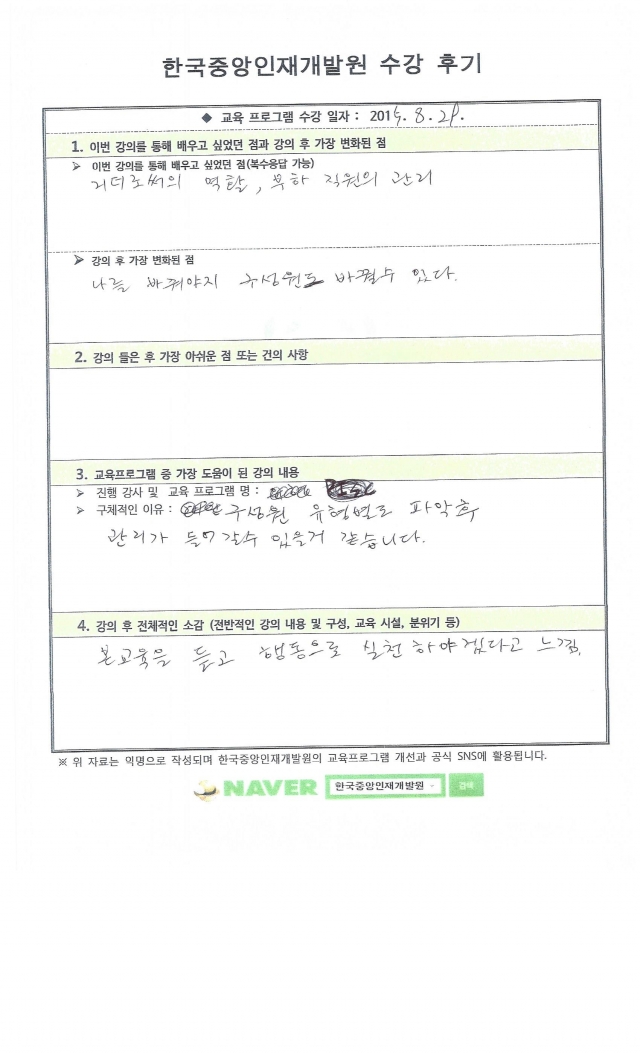 한국중앙인재개발원 수강 후기
◆ 교육 프로그램 수강 일자 : 2015. 8. 29.
1. 이번 강의를 통해 배우고 싶었던 점과 강의 후 가장 변화된 점
➢ 이번 강의를 통해 배우고 싶었던 점(복수응답 가능)
리더로써의 역할, 부하 직원의 관리
➢ 강의 후 가장 변화된 점
나를 바꿔야지 구성원도 바뀔수 있다.
2. 강의 들은 후 가장 아쉬운 점 또는 건의 사항
3. 교육프로그램 중 가장 도움이 된 강의 내용
➢ 진행 강사 및 교육 프로그램 명 :
➢ 구체적인 이유 : 구성원 유형별로 파악후
관리가 들어갈수 있을거 같습니다.
4. 강의 후 전체적인 소감 (전반적인 강의 내용 및 구성, 교육 시설, 분위기 등)
본교육을 듣고 행동으로 실천 하야겠다고 느낌.
※ 위 자료는 익명으로 작성되며 한국중앙인재개발원의 교육프로그램 개선과 공식 SNS에 활용됩니다.
NAVER 한국중앙인재개발원 검색